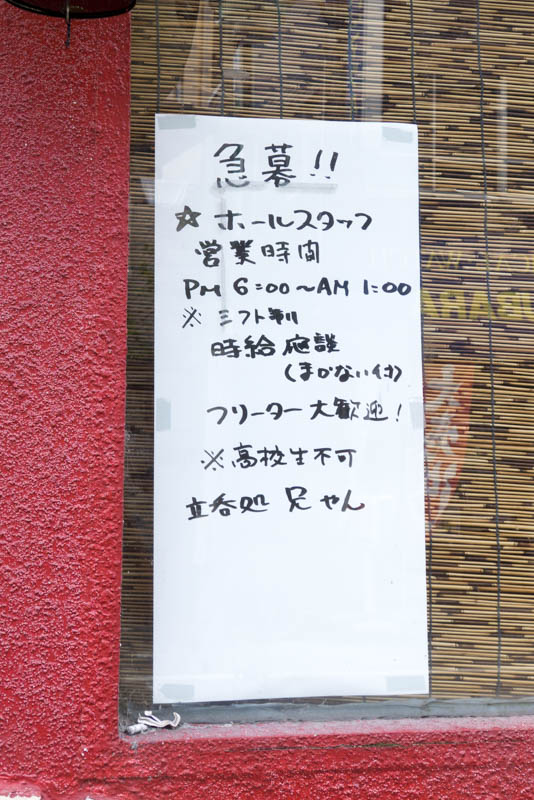 急募!!
☆ ホールスタッフ
営業時間
PM 6:00〜AM 1:00
※ シフト制
時給応談
(まかない付)
フリーター大歓迎!
※高校生不可
立呑処 兄やん